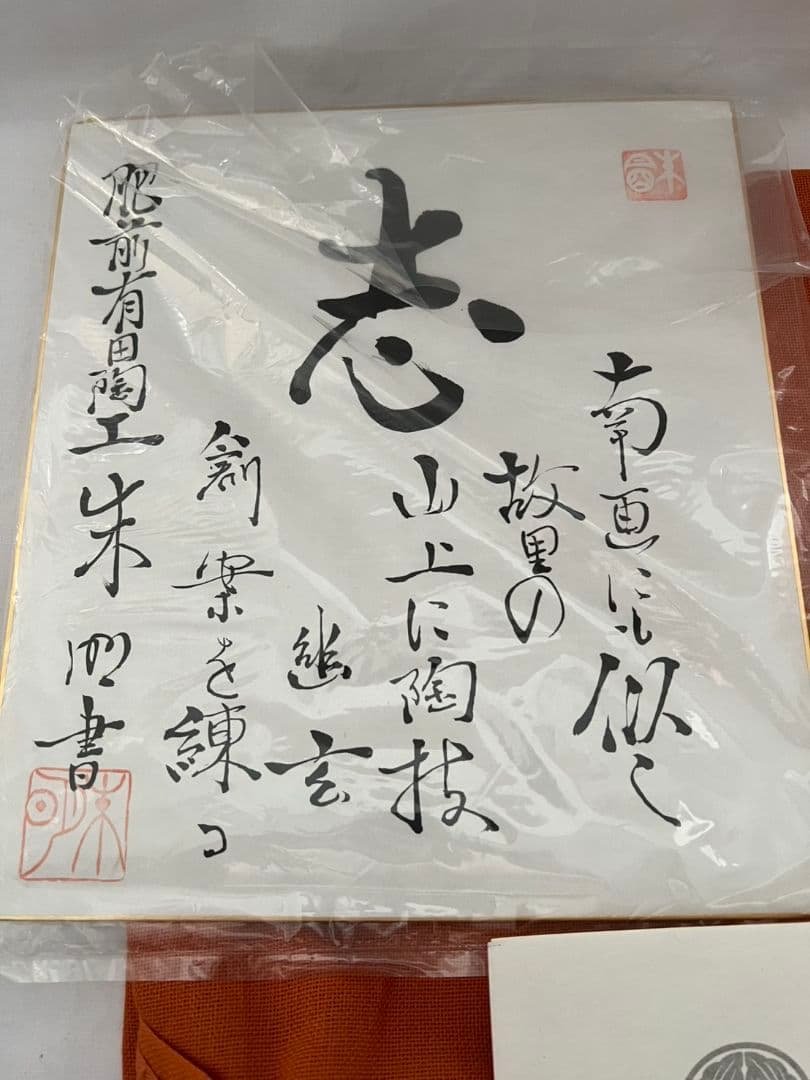 志
南画にも似し
故里の
山上に陶技
幽玄
創案を練る
肥前有田陶工朱明書